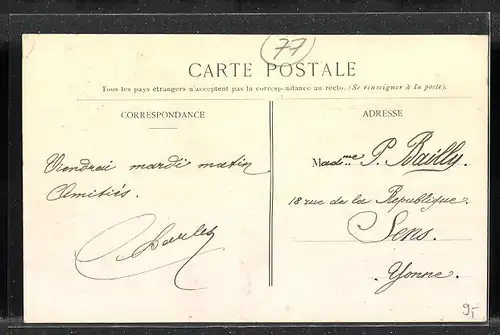 77
CARTE POSTALE
Tous les pays étrangers n'acceptent pas la correspondance au recto. (Se renseigner à la poste).
CORRESPONDANCE
ADRESSE
Viendrai mardi matin
Amitiés.
Charles
Madme P. Bailly.
18 rue de la Republique.
Sens.
Yonne.
9,-